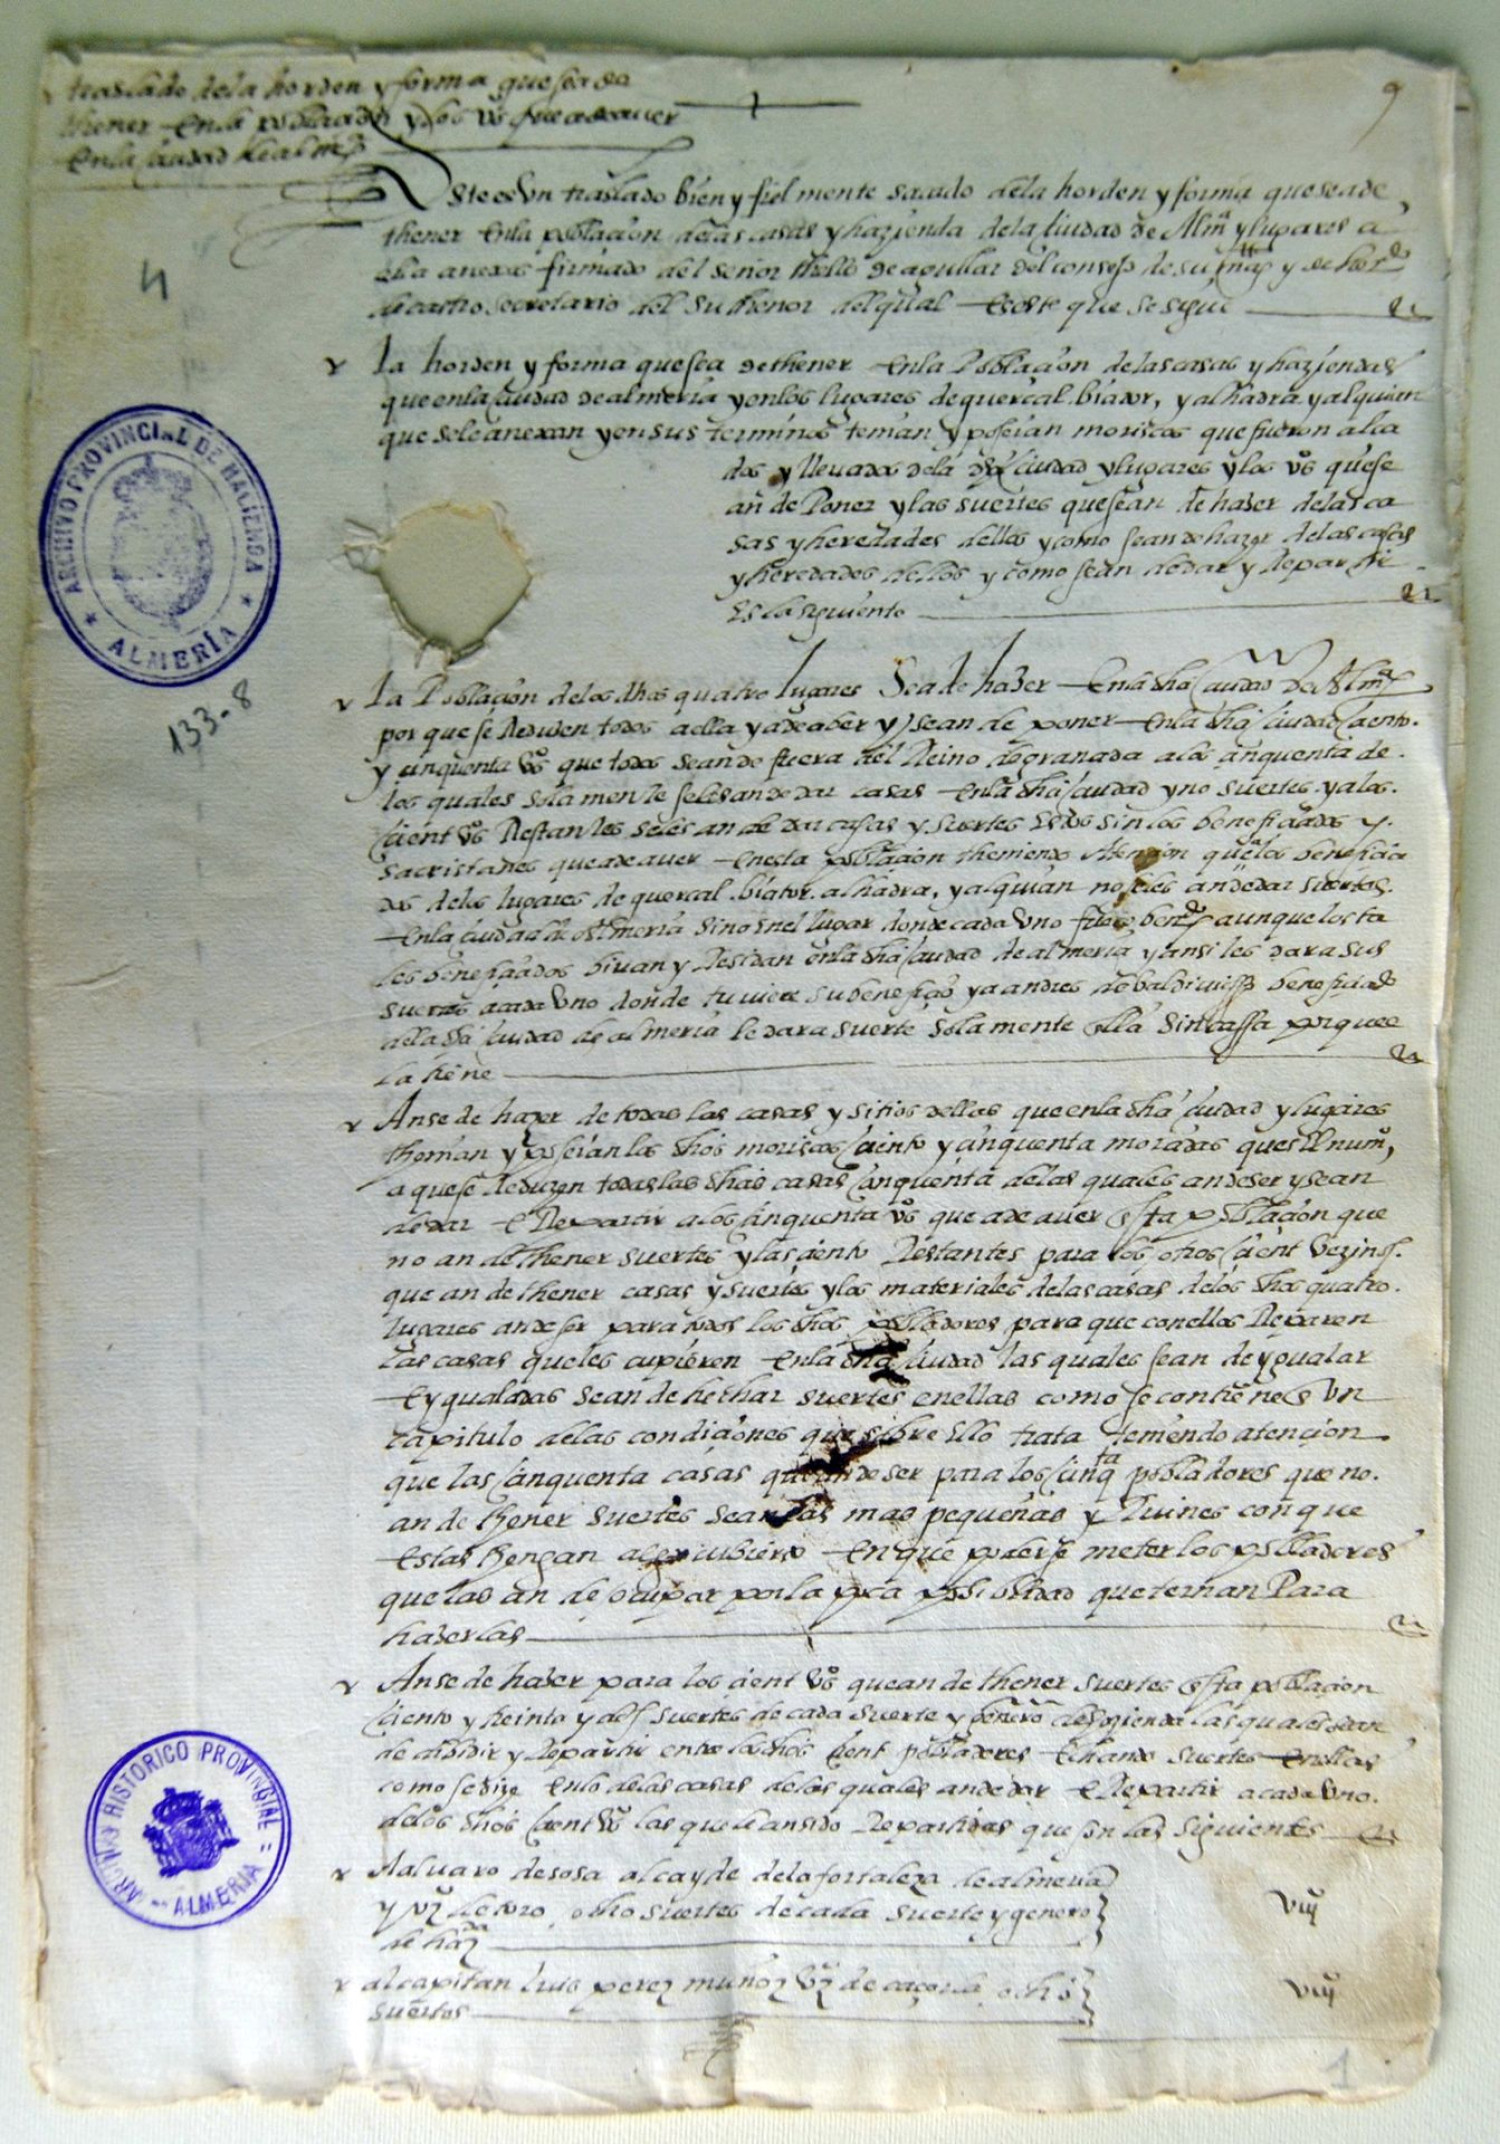 traslado de la horden y forma que se a de
thener en la poblaçion y los vºs que a de aver
en la ciudad de almª
9
Este es Un traslado bien y fiel mente sacado de la horden y forma que se a de
thener en la poblaçion de las casas y hazienda de la ciudad de Almª y lugares a
ella anexos firmado del señor thello de aguilar del consejo de su magt y de herdo
de castro secretario del su thenor del qual es este que se sigue
La horden y forma que se a de thener en la Poblaçion de las casas y haziendas
que en la ciudad de almeria y en los lugares de guercal. biator, y alhadra y alquian
que se le anexan y en sus terminos tenian y poseian moriscos que fueron alca
dos y llevados de la dha ciudad y lugares y los vºs que se
an de Poner y las suertes que se an de hazer de las ca
sas y heredades dellos y como se an de hazer de las casas
y heredades dellos y como se an de dar y Repartir
Es la siguiente
La Poblaçion de los dhos quatro lugares Se a de hazer en la dha ciudad De Almª
por que se Reduzen todos a ella y a de aber y se an de poner en la dha ciudad ciento.
y cinquenta vºs que todos sean de fuera del Reino de granada a los cinquenta de
los quales sola mente se les an de dar casas en la dha ciudad y no suertes. y a los.
cient vºs Restantes se les an de dar casas y suertes Estos sin los benefiçiados y.
sacristanes que a de aver en esta poblaçion theniendo Atençion que a los benefiçia
dos de los lugares de guercal. biator. alhadra, y alquian no se les an de dar suertes.
en la ciudad de Almeria sino en el lugar donde cada Uno fuere benefdo aunque los ta
les benefiçiados bivan y Residan en la dha ciudad de almeria y ansi les dara sus
suertes a cada Uno donde tuviere su benefiçio y a andres de baldivieso benefiçiado
de la dha ciudad de almeria le dara suerte sola mente en ella Sin cassa porque
la tiene
Anse de hazer de todas las casas y sitios dellas que en la dha ciudad y lugares
thenian y poseian los dhos moriscos ciento y cinquenta moradas ques El numº,
a que se Reduzen todas las dhas casas cinquenta de las quales an de ser y se an
de dar e Repartir a los cinquenta vºs que a de aver en esta poblaçion que
no an de thener suertes y las ciento Restantes para los otros cient Vezinos.
que an de thener casas y suertes y los materiales de las casas de los dhos quatro.
lugares an de ser para todos los dhos pobladores para que con ellos Reparen
las casas que les cupieren en la dha ciudad las quales se an de ygualar
e ygualadas se an de hechar suertes en ellas como se contiene en Un
capitulo de las condiçiones que sobre Ello trata teniendo atençion.
que las cinquenta casas que an de ser para los cinqta pobladores que no.
an de thener suertes sean las mas pequeñas y Ruines con que
Estas tengan algo cubierto en que poderse meter los pobladores
que las an de ocupar por la poca posibilidad que ternan Para
hazerlas
Anse de hazer para los cient vºs que an de thener suertes en esta poblaçion
ciento y treinta y dos suertes de cada suerte y genero de hazienda las quales se an
de dibidir y Repartir entre los dhos cient pobladores Echando suertes en ellas
como se dize en lo de las casas de las quales an de dar e Repartir a cada Uno.
de los dhos cient vºs las que le an sido Repartidas que son las siguientes
A alvaro de sosa alcayde de la fortaleza de almeria
y vzº de toro ocho suertes de cada suerte y genero
de hazda
viijº
al capitan luis perez muñoz vzº de caçorla ocho
suertes
viijº
ARCHIVO PROVINCIAL DE HACIENDA
* ALMERÍA *
133-8
ARCHIVO HISTORICO PROVINCIAL
ALMERIA
1